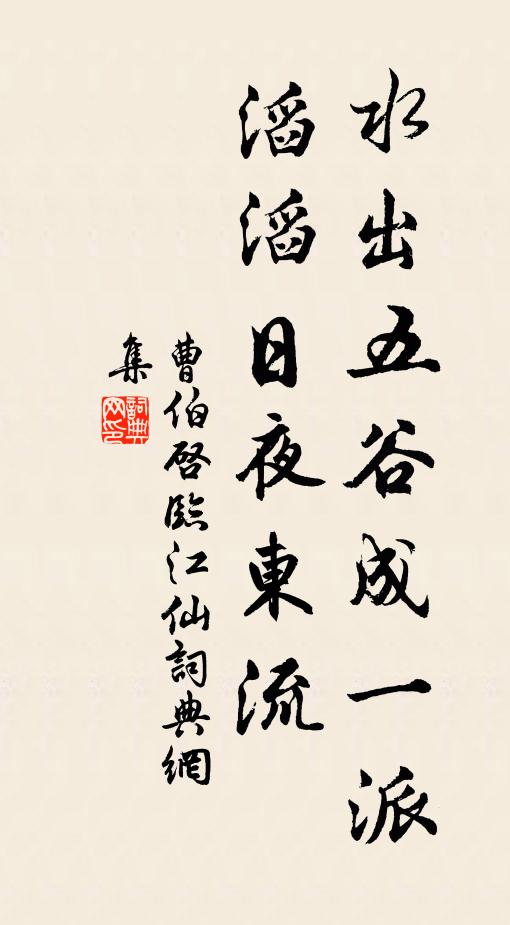 水出五谷成一派
滔滔日夜東流
曹伯啓臨江仙詞典網
集
詞典网印